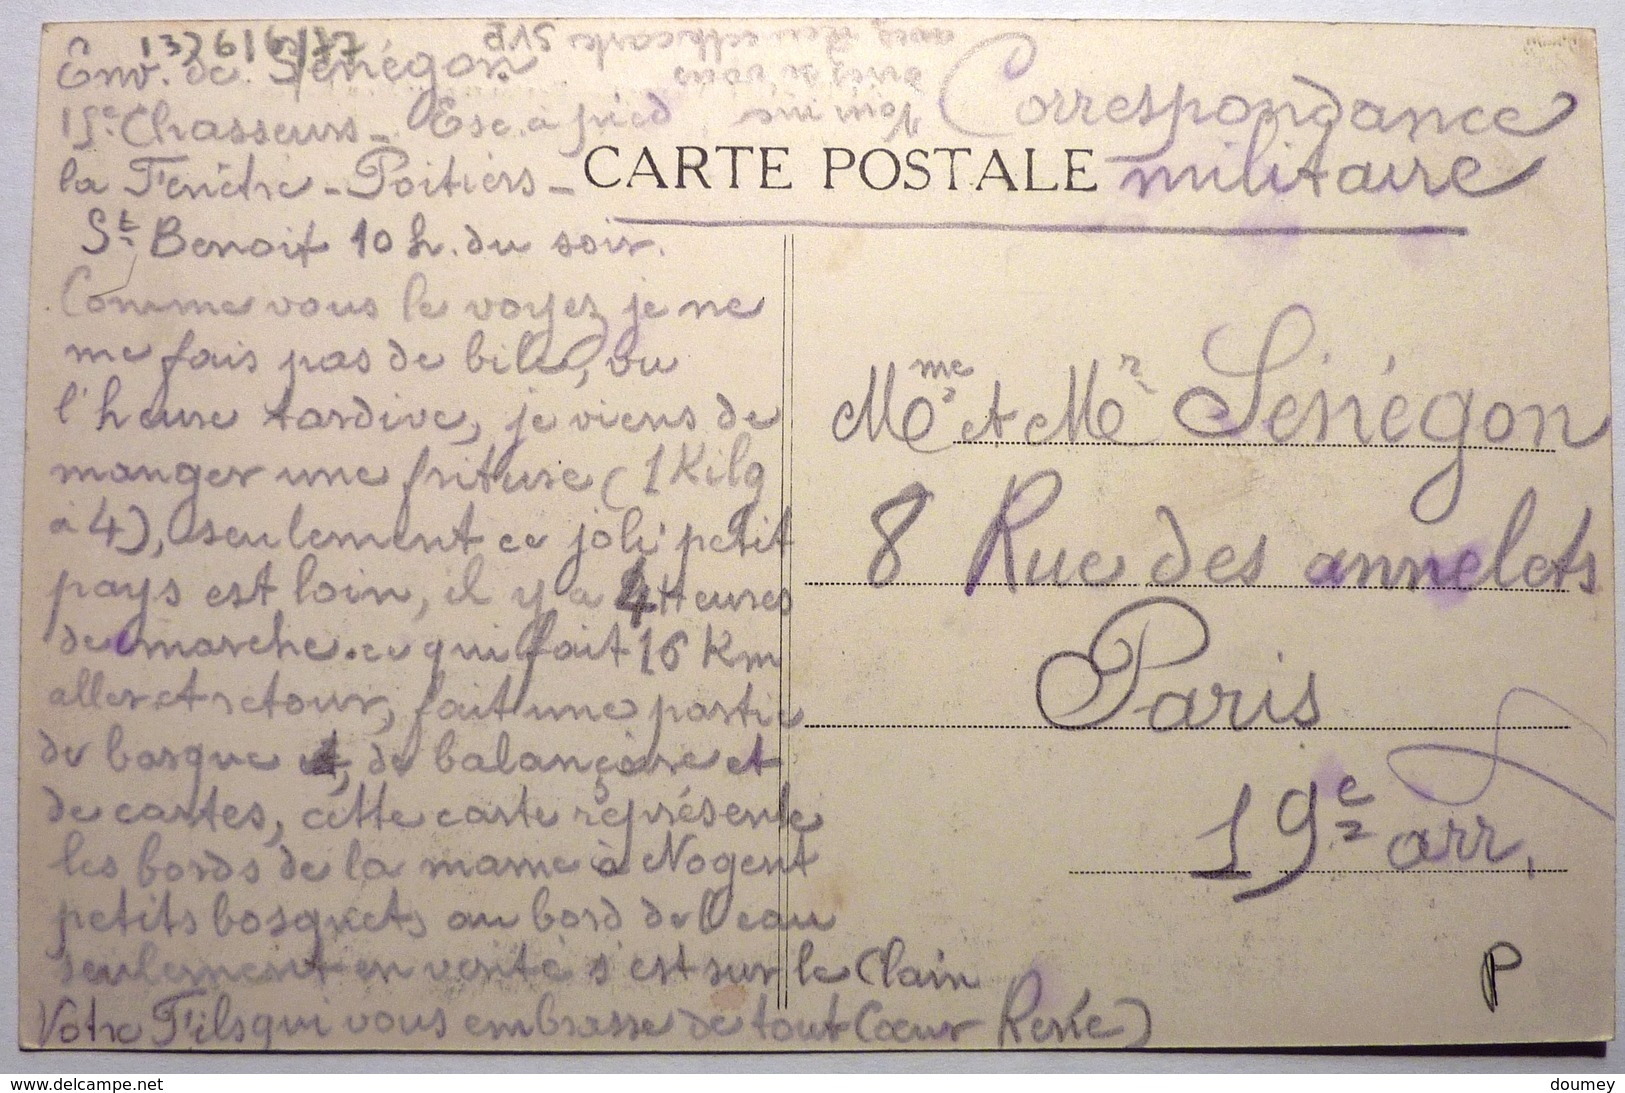 1326/6/77
Env. de Sénégon
15e Chasseurs - Esc. à pied
la Fenêtre - Poitiers -
St Benoit 10 h. du soir.
Comme vous le voyez je ne
me fais pas de bile, vu
l'heure tardive, je viens de
manger une friture (1 Kilg
à 4), seulement ce joli petit
pays est loin, il y a 4 Heures
de marche. ce qui fait 16 Km
aller et retour, fait une partie
de barque et, de balançoire et
de cartes, cette carte représente
les bords de la marne à Nogent
petits bosquets au bord de l'eau
seulement en verité s'est sur le Clain
Votre Fils qui vous embrasse de tout Cœur René
avez reçu cette carte SVP
Correspondance
militaire
CARTE POSTALE
Mme et Mr Sénégon
8 Rue des annelets
Paris
19e arr.
P
www.delcampe.net
doumey